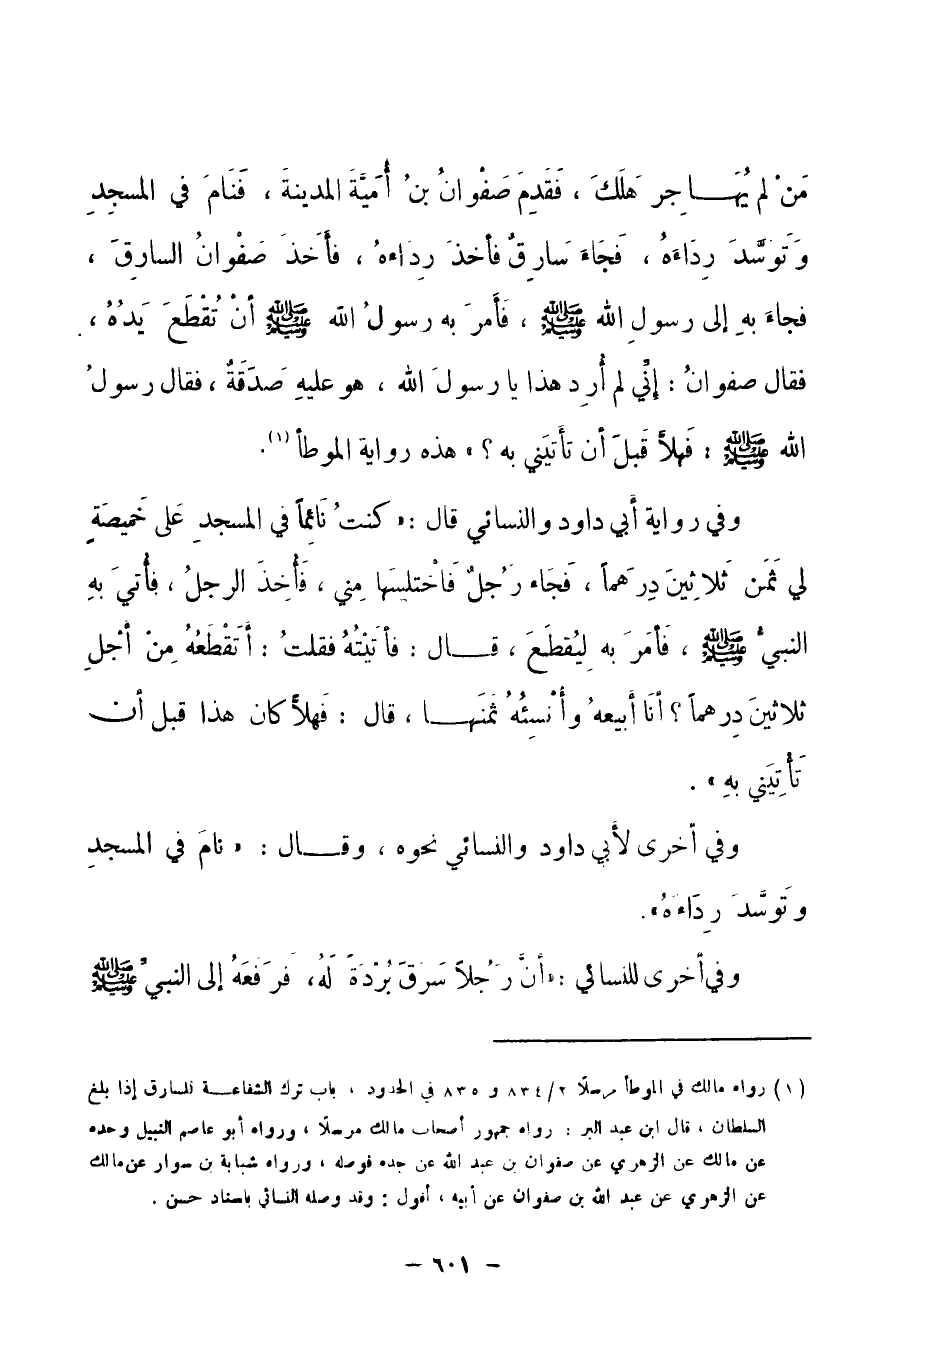 مَنْ لم يُهَـــاجِر هَلَكَ ، فَقَدِمَ صَفْوانُ بنُ أُمَيَّةَ المدينةَ ، فَنَامَ في المسجِدِ
وَتَوسَّدَ رِدَاءَهُ ، فَجَاءَ سَارِقٌ فأخذَ رِدَاءهُ ، فأَخذَ صَفْوانُ السارقَ ،
فجاءَ بهِ إلى رسولِ الله ﷺ ، فَأَمرَ به رسولُ الله ﷺ أنْ تُقْطَعَ يَدُهُ ،
فقال صفوانُ : إنِّي لم أُرِد هذا يا رسولَ الله ، هو عليهِ صَدَقَةٌ ، فقال رسولُ
الله ﷺ : فَهلاَّ قَبلَ أن تأتيَني به ؟ » هذه رواية الموطأ (١).
وفي رواية أبي داود والنسائي قال : « كنتُ نَائِماً في المسجدِ عَلى خَمِيصَةٍ
لي ثَمَن ثَلاثِينَ دِرهَماً ، فَجَاء رَجُلٌ فَاخْتلِسَها مِني ، فَأُخِذَ الرجلُ ، فأُتيَ بهِ
النبيُّ ﷺ ، فَأمَرَ به لِيُقطَعَ ، قـــال : فأتَيْتُهُ فقلتُ : أتَقْطَعُهُ مِنْ أجْلِ
ثلاثينَ دِرهماً ؟ أنَا أبيعهُ وأُنْسِئُهُ ثمنَهـــا ، قال : فَهلاَّ كان هذا قبل أن
تَأْتِيَني بهِ » .
وفي أخرى لأبي داود والنسائي نحوه ، وقـــال : « نامَ في المسجدِ
وتَوسَّدَ رِدَاءَهُ» .
وفي أخرى للنسائي : «أنَّ رَجُلاً سَرَقَ بُرْدَةً لَهُ، فَرفَعَهُ إلى النبيِّ ﷺ
(١) رواه مالك في الموطأ مرسلًا ٨٣٤/٢ و ٨٣٥ في الحدود ، باب ترك الشفاعـــة للسارق إذا بلغ
السلطان ، قال ابن عبد البر : رواه جمهور أصحاب مالك مرسلًا ، ورواه أبو عاصم النبيل وحده
عن مالك عن الزهري عن صفوان بن عبد الله عن جده فوصله ، ورواه شبابة بن سوار عن مالك
عن الزهري عن عبد الله بن صفوان عن أبيه ، أقول : وقد وصله النسائي باسناد حسن .
- ٦٠١ -